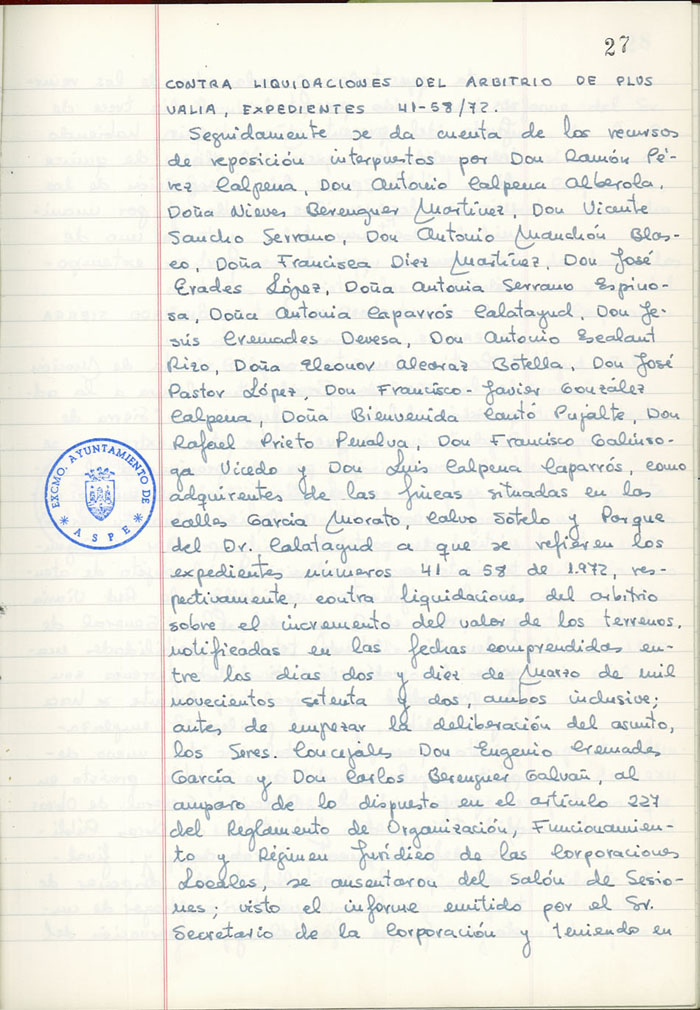 27
CONTRA LIQUIDACIONES DEL ARBITRIO DE PLUS
VALIA, EXPEDIENTES 41-58/72.
Seguidamente se da cuenta de los recursos
de reposición interpuestos por Don Ramón Pé-
rez Calpena, Don Antonio Calpena Alberola,
Doña Nieves Berenguer Martínez, Don Vicente
Sancho Serrano, Don Antonio Manchón Blas-
co, Doña Francisca Diez Martínez, Don José
Erades López, Doña Antonia Serrano Espino-
sa, Doña Antonia Caparrós Calatayud, Don Je-
sús Cremades Devesa, Don Antonio Escalant
Rizo, Doña Eleonor Alcaraz Botella, Don José
Pastor López, Don Francisco-Javier González
Calpena, Doña Bienvenida Cantó Pujalte, Don
Rafael Prieto Penalva, Don Francisco Galinso-
ga Vicedo y Don Luis Calpena Caparrós, como
adquirentes de las fincas situadas en las
calles García Morato, Calvo Sotelo y Parque
del Dr. Calatayud a que se refieren los
expedientes números 41 a 58 de 1.972, res-
pectivamente, contra liquidaciones del arbitrio
sobre el incremento del valor de los terrenos,
notificadas en las fechas comprendidas en-
tre los días dos y diez de Marzo de mil
novecientos setenta y dos, ambos inclusive;
antes de empezar la deliberación del asunto,
los Sres. Concejales Don Eugenio Cremades
García y Don Carlos Berenguer Galvañ, al
amparo de lo dispuesto en el artículo 227
del Reglamento de Organización, Funcionamien-
to y Régimen Jurídico de las Corporaciones
Locales, se ausentaron del Salón de Sesio-
nes; visto el informe emitido por el Sr.
Secretario de la Corporación y teniendo en
EXCMO. AYUNTAMIENTO DE
* ASPE *